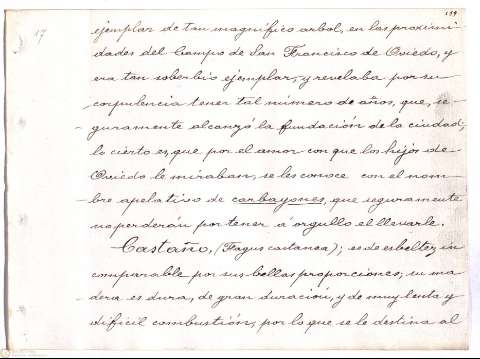 17
ejemplar de tan magnífico arbol, en las proximi-
dades del Campo de San Francisco de Oviedo, y
era tan soberbio ejemplar, y revelaba por su
corpulencia tener tal número de años, que, se-
guramente alcanzó la fundación de la ciudad;
lo cierto es, que por el amor con que los hijos de
Oviedo le miraban, se les conoce con el nom-
bre apelativo de carbayones, que seguramente
no perderán por tener á orgullo el llevarle.
Castaño, (Fagus castanea); es de esbeltez in
comparable por sus bellas proporciones; su ma-
dera es dura, de gran duración, y de muy lenta y
dificil combustión, por lo que se le destina al